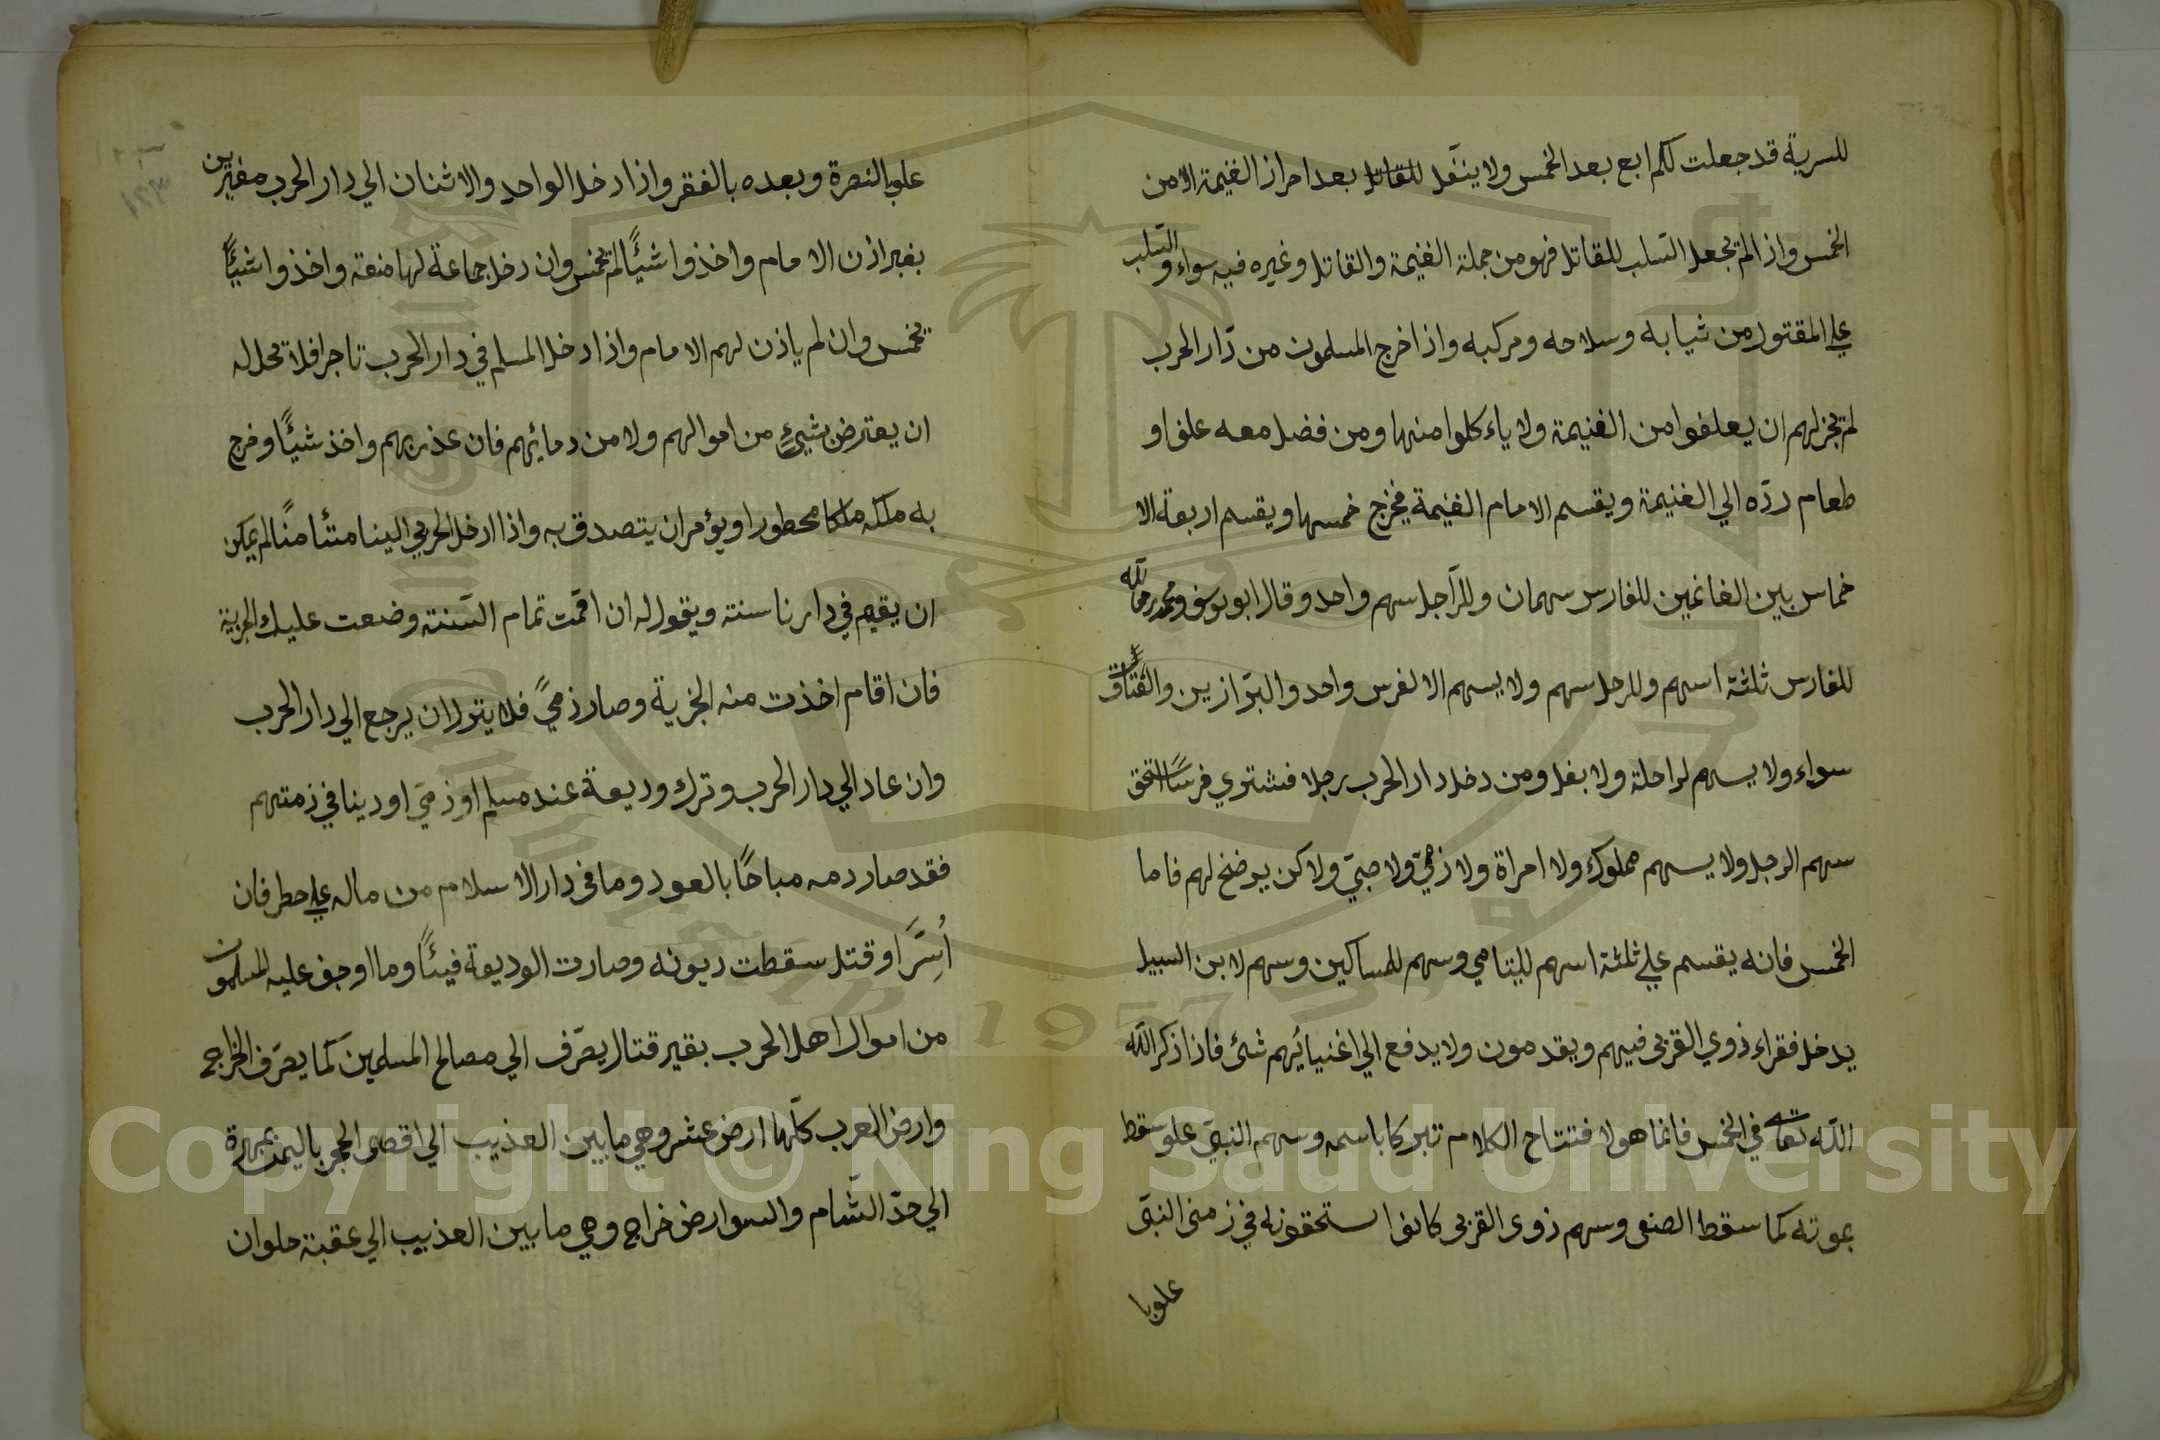 للسرية قد جعلت لكم ابع بعد الخمس ولا ينفّل للقاتل بعد احراز الغنيمة الا من
الخمس واذا لم يجعل السّلب للقاتل فهو من جملة الغنيمة والقاتل وغيره فيه سواء والسّلب
علي المقتول من ثيابه وسلاحه ومركبه واذا خرج المسلمون من دّار الحرب
لم يجز لهم ان يعلفوا من الغنيمة ولا ياءكلوا منها ومن فضل معه علف او
طعام ردّه الي الغنيمة ويقسم الامام الغنيمة فيخرج خمسها ويقسم اربعة الا
خماس بين الغانمين للفارس سهمان وللرّاجل سهم واحد وقال ابو يوسف ومحمد رحمالله
للفارس ثلثة اسهم وللرجل سهم ولا يسهم الا لفرس واحد والبرّازين والعتاق
سواء ولا يسهم لراحلة ولا بغل ومن دخل دار الحرب رجلا فشتري فرسًا استحق
سهم الرجل ولا يسهم مملوك ولا امراة ولا ذمّيّ ولا صبيّ ولاكن يرضخ لهم فاما
الخمس فانه يقسم علي ثلثة اسهم لليتامي وسهم للمساكين وسهم لابن السبيل
يدخل فقراء ذوي القربى فيهم ويقدمون ولا يدفع الي اغنيائهم شئ فاذا ذكر اللّه
اللّه تعالى في الخمس فانما هو لا فتتاح الكلام تبركا باسمه وسهم النبيّ علو سقط
بموته كما سقط الصفى وسهم ذوى القربى كانوا استحقونه في زمنى النبىّ
علوبا
علوبا النصرة وبعده بالفقر واذا دخل الواحد والاثنان الي دار الحرب مغيرين
بغير اذن الامام واخذوا شيئًا لم يخمس وان دخل جماعة لها منعة واخذوا شيئًا
يخمس وان لم ياذن لهم الامام واذا دخل المسلم في دار الحرب تاجرا فلا يحل له
ان يعترض بشيءٍ من اموالهم ولا من دمائهم فان عذر بهم واخذ شيئًا وخرج
به ملكه ملكا محطورا ويؤمر ان يتصدق به واذا ادخل الحربي الينا متئامنًا لم يمكن
ان يقيم في دارنا سنة ويقول له ان اقمت تمام السّنة وضعت عليك الجزية
فان اقام اخذت منه الجزية وصار ذمّيً فلا يترل ان يرجع الي دار الحرب
وان عاد الي دار الحرب وترك وديعة عند مسلم او ذمّي او دينا في ذمتهم
فقد صار دمه مباحًا بالعود وما فى دار الاسلام من ماله علي حطر فان
أُسِرَّ او قتل سقطت ديونه وصارت الوديعة فيئًا وما اوجف عليه المسلمون
من اموال اهل الحرب بقير قتال يصّرف الي مصالح المسلمين كما يصّرف الخراج
وارض العرب كلّها ارض عشر وهي ما بين العذيب الي اقصى الحجر باليمن بمهرة
الي حدّ الشّام والسوارض خراج وهي ما بين العذيب الي عقبة حلوان